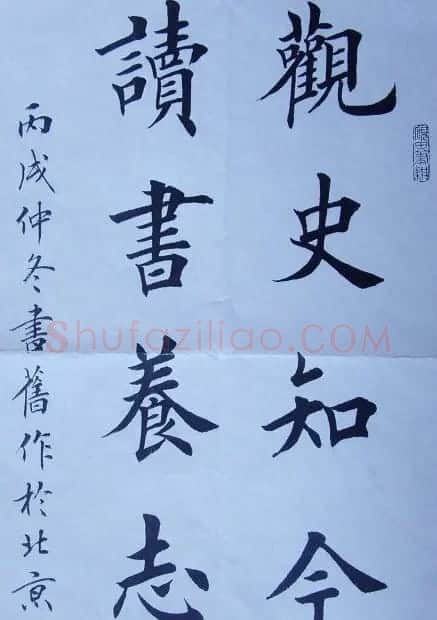 觀史知今
讀書養志
丙戌仲冬書舊作於北京
Shufaziliao.COM